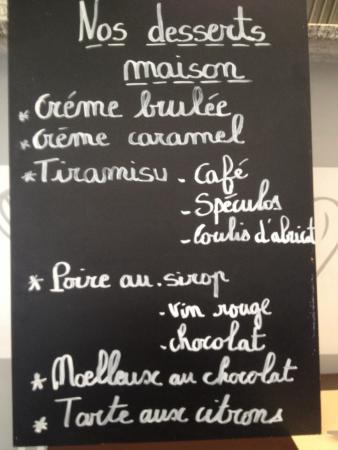 Nos desserts
maison
* Créme brulée
* Créme caramel
* Tiramisu - Café
- Spéculos
- Coulis d'abricot
* Poire au sirop
- Vin rouge
- chocolat
* Moelleux au chocolat
* Tarte aux citrons